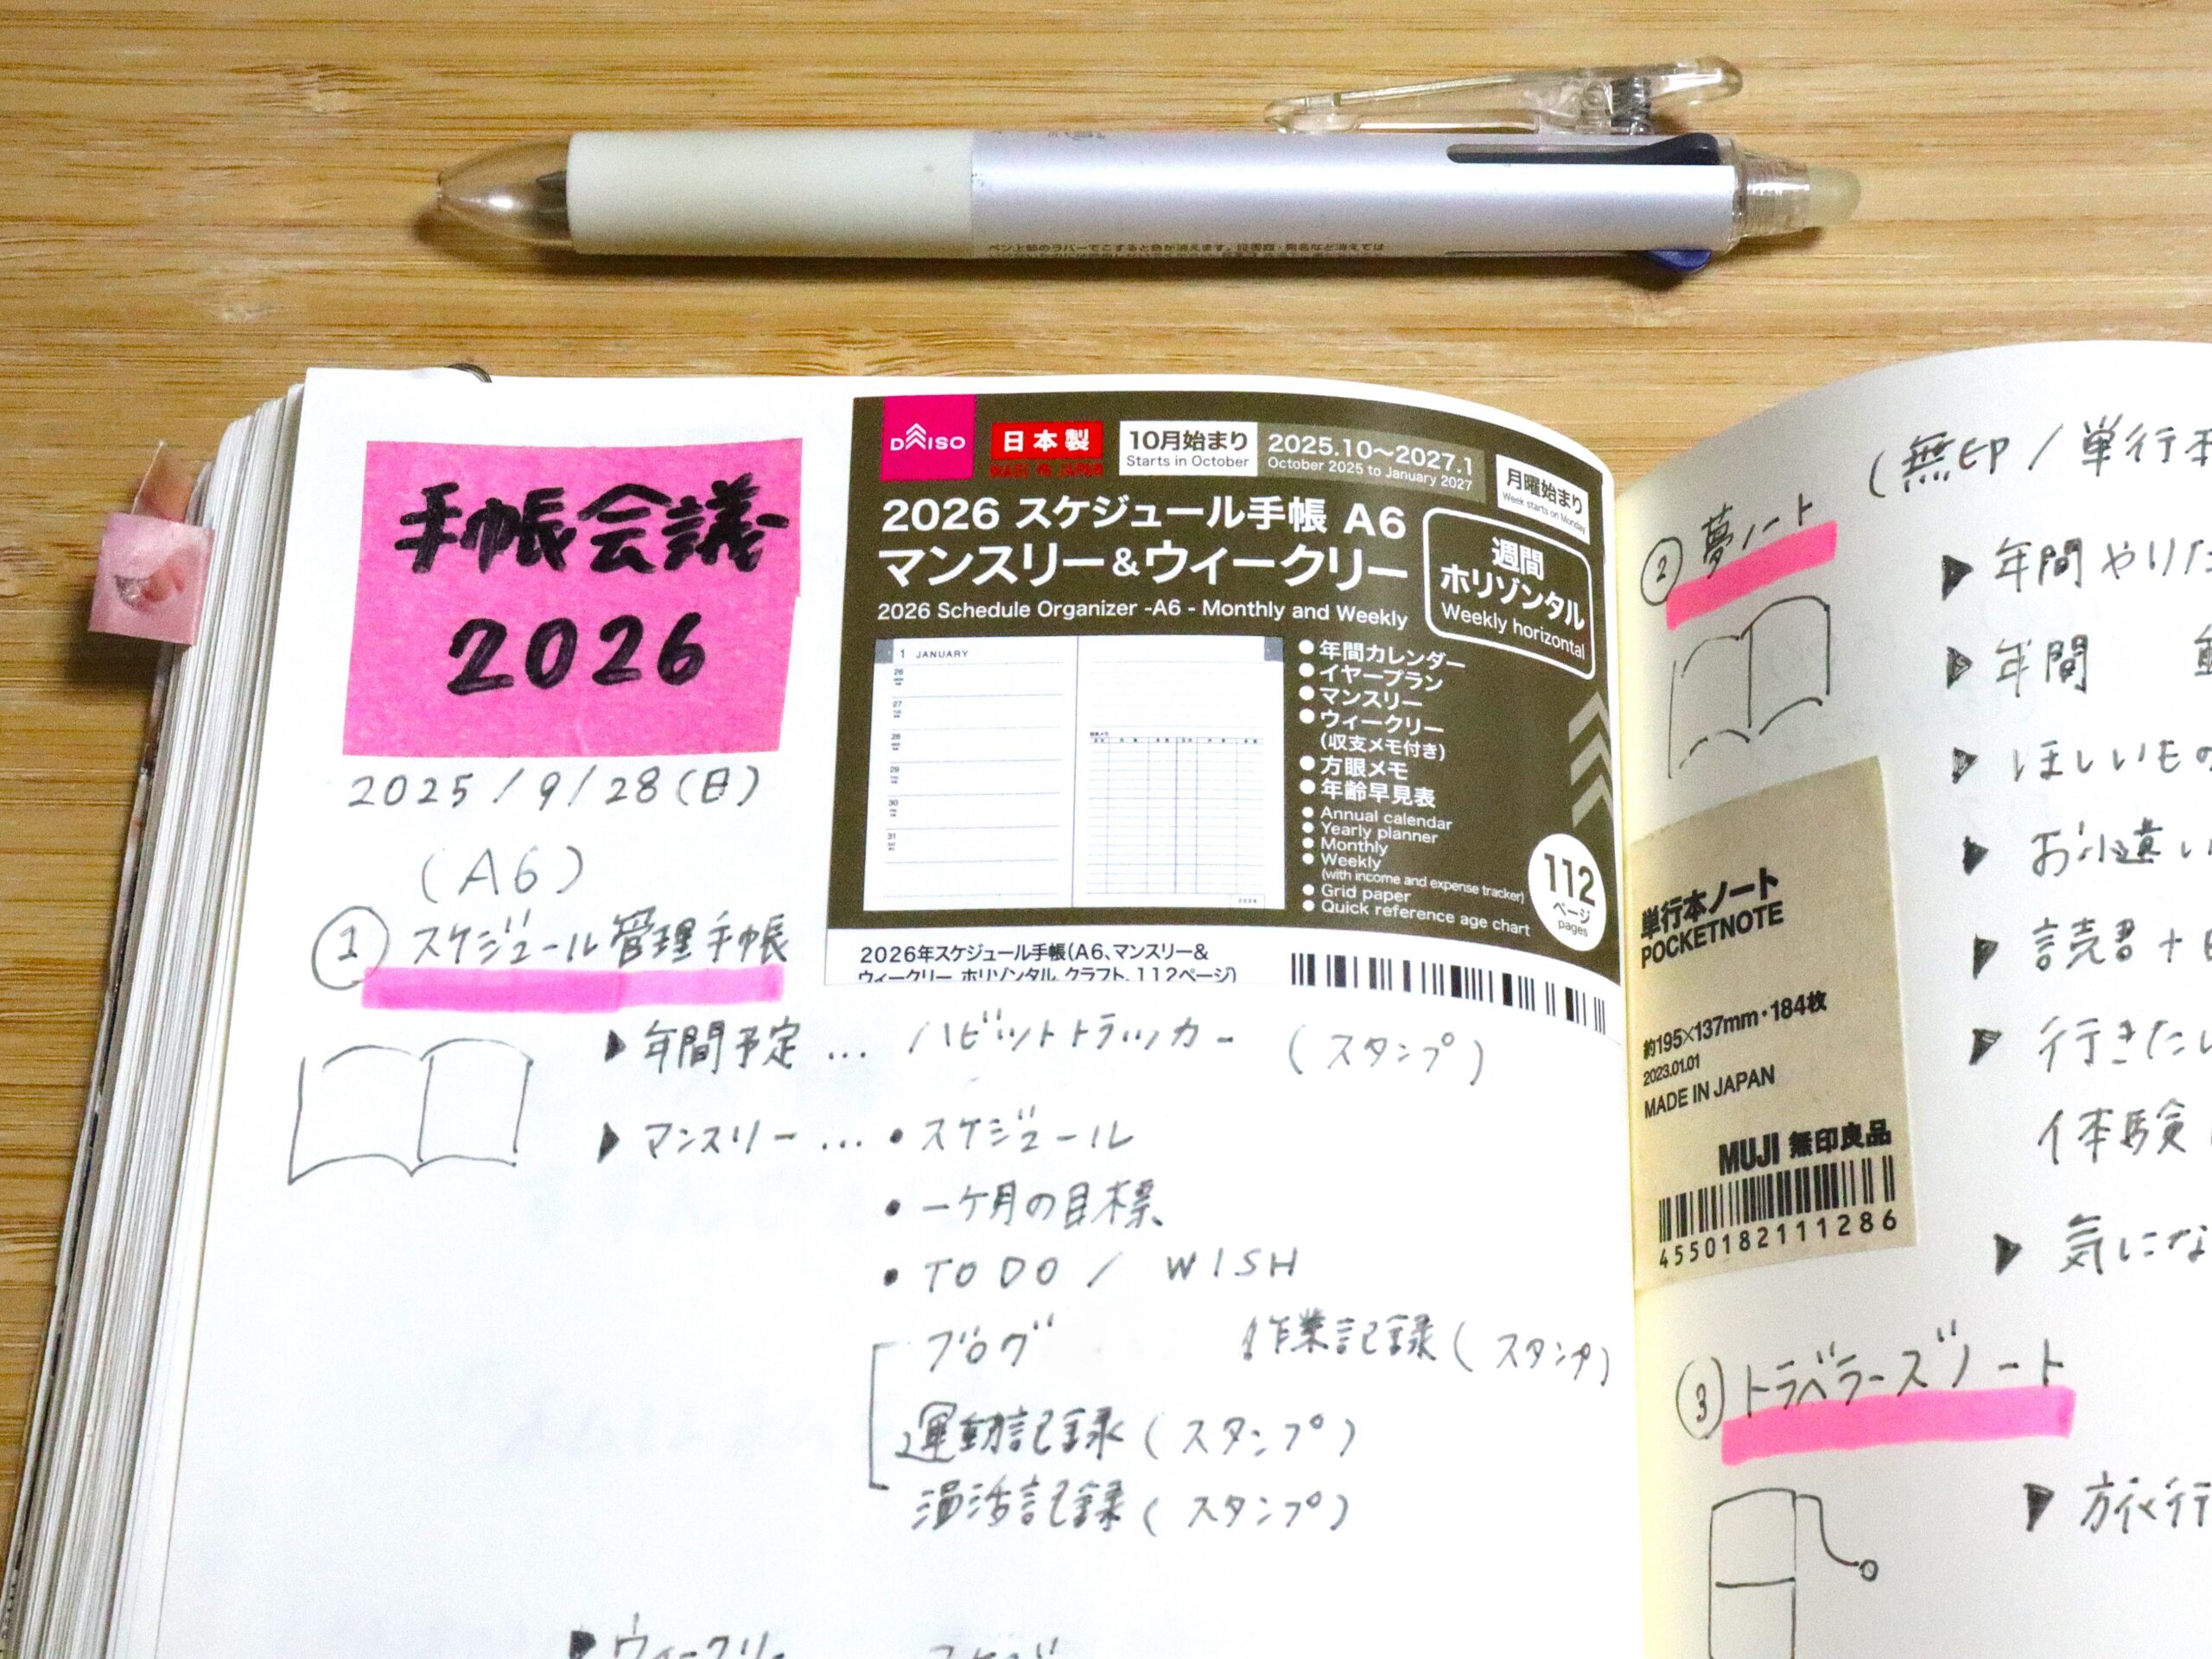 ペン上部のラバーでこすると色が消えます。証書類・宛名など消えては
手帳会議
2026
2025/9/28(日)
(A6)
① スケジュール管理手帳
DAISO
日本製
MADE IN JAPAN
10月始まり
Starts in October
2025.10〜2027.1
October 2025 to January 2027
月曜始まり
Week starts on Monday
2026 スケジュール手帳 A6
マンスリー&ウィークリー
2026 Schedule Organizer -A6 - Monthly and Weekly
週間
ホリゾンタル
Weekly horizontal
1 JANUARY
●年間カレンダー
●イヤープラン
●マンスリー
●ウィークリー
(収支メモ付き)
●方眼メモ
●年齢早見表
●Annual calendar
●Yearly planner
●Monthly
●Weekly
(with income and expense tracker)
●Grid paper
●Quick reference age chart
112
ページ
pages
2026年スケジュール手帳(A6、マンスリー&
ウィークリー、ホリゾンタル、クラフト、112ページ)
▶年間予定 … ハビットトラッカー (スタンプ)
▶マンスリー … •スケジュール
•一ケ月の目標
•TODO / WISH
ブログ 作業記録(スタンプ)
運動記録(スタンプ)
温活記録(スタンプ)
▶ウィークリー スケジ
(無印/単行本
② 夢ノート
▶年間やりた
▶年間
▶ほしいもの
▶お小遣い
▶読書+
▶行きたい
体験
▶気にな
単行本ノート
POCKETNOTE
約195×137mm・184枚
2023.01.01
MADE IN JAPAN
MUJI 無印良品
4550182111286
③ トラベラーズノート
▶旅行